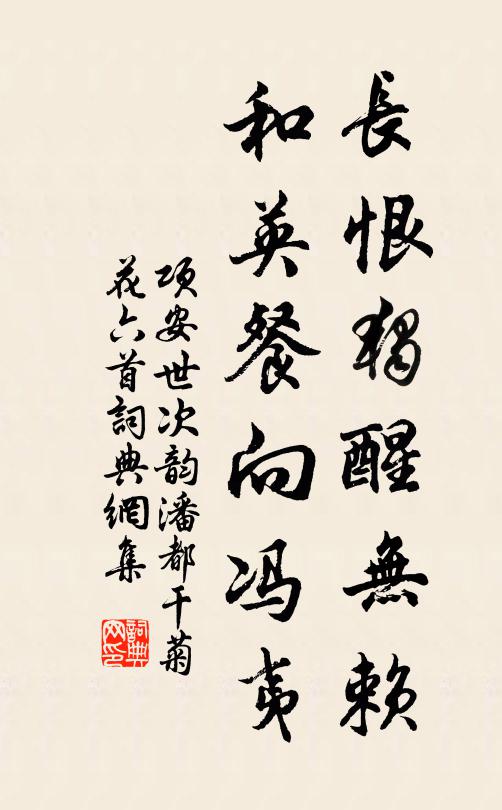 長恨獨醒無賴
和英餐向冯夷
项安世次韵潘都干菊
花六首詞典網集
詞典网印